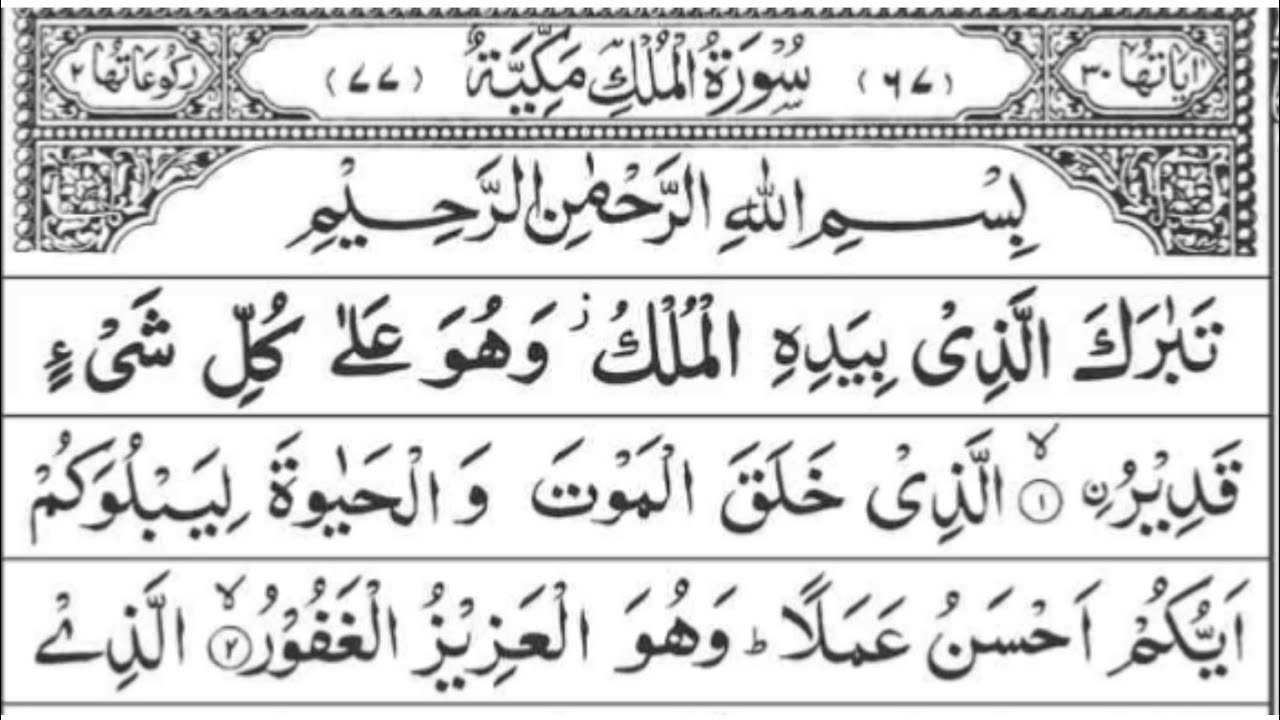 اٰیاتها ٣٠ (٦٧) سُوْرَةُ الْمُلْكِ مَكِّیَّةٌ (٧٧) رکوعاتها ٢
بِسْمِ اللّٰهِ الرَّحْمٰنِ الرَّحِیْمِ
تَبٰرَكَ الَّذِیْ بِیَدِهِ الْمُلْكُ ؗ وَهُوَ عَلٰی كُلِّ شَیْءٍ
قَدِیْرُ نِ ۙ﴿١﴾ الَّذِیْ خَلَقَ الْمَوْتَ وَ الْحَیٰوةَ لِیَبْلُوَكُمْ
اَیُّكُمْ اَحْسَنُ عَمَلًا ؕ وَهُوَ الْعَزِیْزُ الْغَفُوْرُ ۙ﴿٢﴾ الَّذِیْ